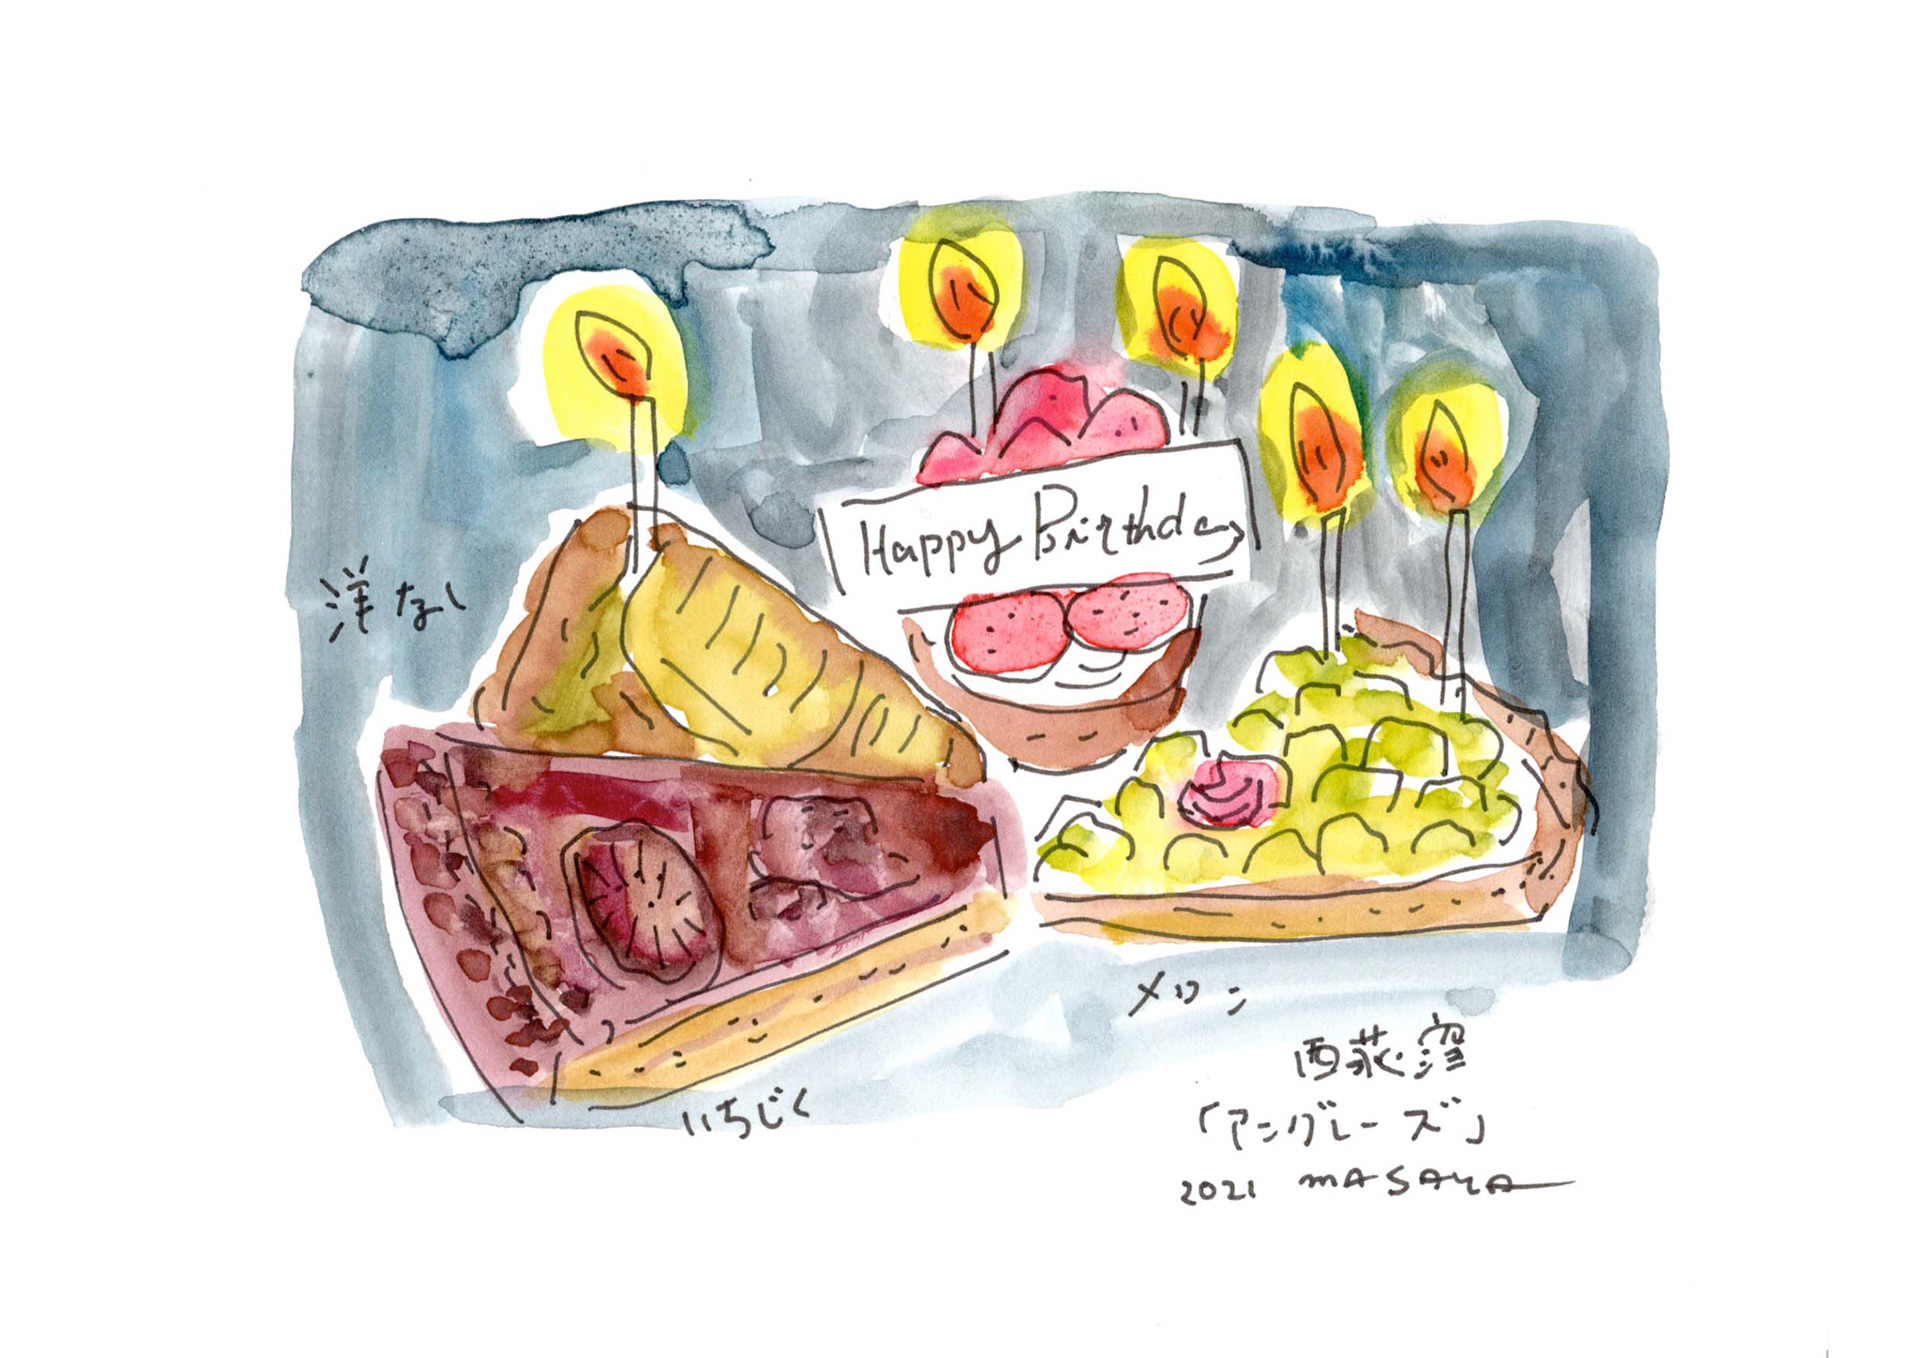 Happy Birthday
洋なし
メロン
いちじく
西荻窪
「アングレーズ」
2021 MASAYA